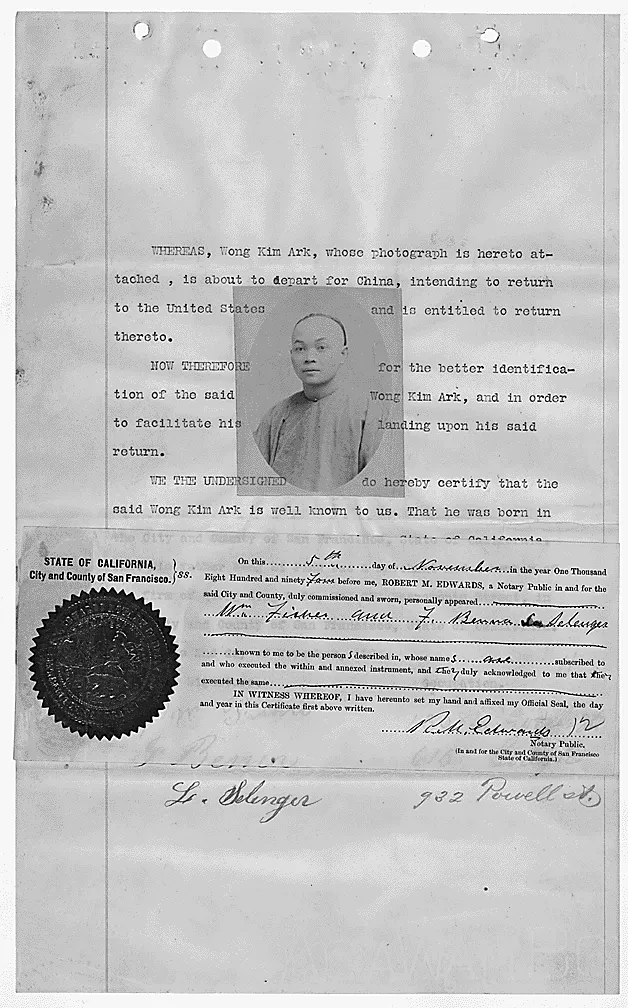 WHEREAS, Wong Kim Ark, whose photograph is hereto at-
tached , is about to depart for China, intending to return
to the United States and is entitled to return
thereto.
NOW THEREFORE for the better identifica-
tion of the said Wong Kim Ark, and in order
to facilitate his landing upon his said
return.
WE THE UNDERSIGNED do hereby certify that the
said Wong Kim Ark is well known to us. That he was born in
the City and County of San Francisco, State of California
STATE OF CALIFORNIA,
City and County of San Francisco. } ss.
On this 5th day of November in the year One Thousand
Eight Hundred and ninety four before me, ROBERT M. EDWARDS, a Notary Public in and for the
said City and County, duly commissioned and sworn, personally appeared
Wm Fisher and F. Benna Selenger
known to me to be the person s described in, whose name s are subscribed to
and who executed the within and annexed instrument, and they duly acknowledged to me that they
executed the same
IN WITNESS WHEREOF, I have hereunto set my hand and affixed my Official Seal, the day
and year in this Certificate first above written.
R. M. Edwards
Notary Public.
(In and for the City and County of San Francisco
State of California.)
L. Selenger 932 Powell st.